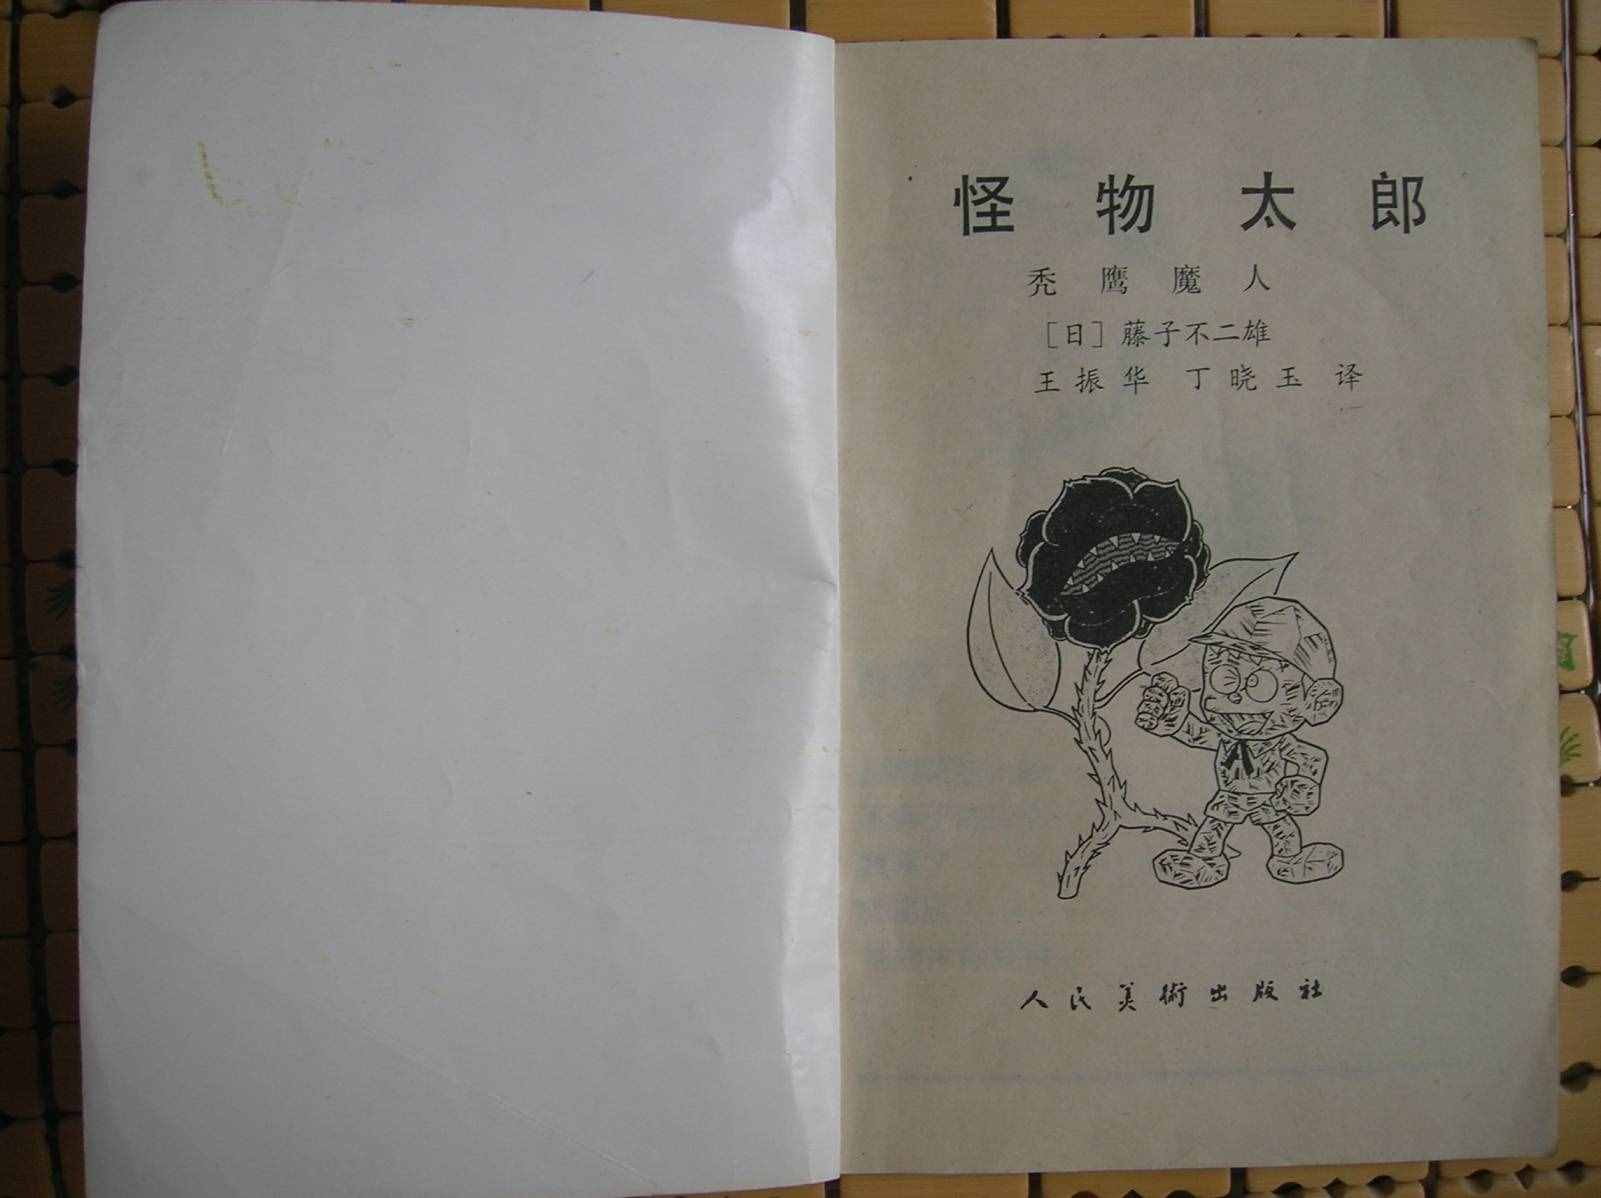 怪物太郎
秃鹰魔人
［日］藤子不二雄
王振华 丁晓玉 译
人民美術出版社